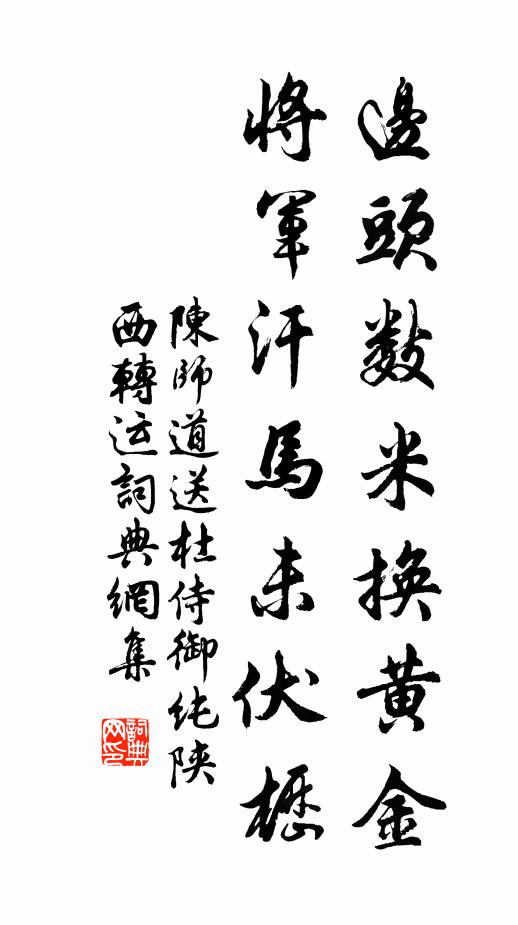 邊頭數米換黄金
將軍汗馬未伏櫪
陳師道送杜侍御純陜
西轉运詞典網集
詞典网印